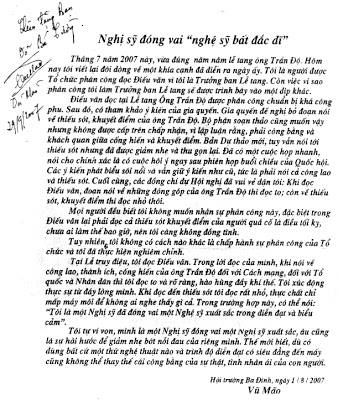 Nghị sỹ đóng vai “nghệ sỹ bất đắc dĩ”
Tháng 7 năm 2007 này, vừa đúng năm năm lễ tang ông Trần Độ. Hôm
nay tôi viết lại đôi dòng về một khía cạnh đã diễn ra ngày ấy. Tôi là người được
Tổ chức phân công đọc Điếu văn vì tôi là Trưởng ban Lễ tang. Còn việc vì sao
phân công tôi làm Trưởng ban Lễ tang sẽ được trình bày vào một dịp khác.
Điếu văn đọc tại Lễ tang Ông Trần Độ được phân công chuẩn bị khá công
phu. Sau đó, có tham khảo ý kiến của gia quyến. Gia quyến đề nghị bỏ đoạn nói
về thiếu sót, khuyết điểm của ông Trần Độ. Bộ phận soạn thảo cũng muốn vậy
nhưng không được cấp trên chấp nhận, vì lập luận rằng, phải công bằng và
khách quan giữa cống hiến và khuyết điểm. Bản Dự thảo mới, tuy vẫn nói tới
thiếu sót nhưng đã được giảm nhẹ và thu gọn lại. Đã có một cuộc họp nhanh,
nói cho chính xác là có cuộc hội ý ngay sau phiên họp buổi chiều của Quốc hội.
Các ý kiến phát biểu sôi nổi và vẫn giữ ý kiến như cũ, tức là phải nói cả công lao
và thiếu sót. Cuối cùng, các đồng chí dự Hội nghị đã vui vẻ dặn tôi: Khi đọc
Điếu văn, đoạn nói về những đóng góp của ông Trần Độ thì đọc to; còn về thiếu
sót, khuyết điểm thì đọc nhỏ thôi.
Mọi người đều biết tôi không muốn nhận sự phân công này, đặc biệt trong
Điếu văn lại phải đọc cả thiếu sót khuyết điểm của người quá cố là điều tối kỵ,
chưa ai làm thế bao giờ, nên tôi càng không đồng tình.
Tuy nhiên, tôi không có cách nào khác là chấp hành sự phân công của Tổ
chức và tôi đã thực hiện nghiêm chỉnh.
Tại Lễ truy điệu, tôi đọc Điếu văn. Trong lời đọc của mình, khi nói về
công lao, thành tích, cống hiến của ông Trần Độ đối với Cách mạng, đối với Tổ
quốc và Nhân dân thì tôi đọc to và rõ ràng, hào hùng đầy khí thế. Tôi xúc động
thực sự từ đáy lòng mình. Khi đọc đến thiếu sót tôi đọc rất nhỏ, thực chất chỉ
mấp máy môi để không ai nghe thấy gì cả. Trong trường hợp này, có thể nói:
“Tôi là một Nghị sỹ đã đóng vai một Nghệ sỹ xuất sắc trong diễn đạt và biểu
cảm”.
Tôi tự ví von, mình là một Nghị sỹ đóng vai một Nghệ sỹ xuất sắc, âu cũng
là sự hài hước để giảm nhẹ bớt nỗi đau của riêng mình. Thế mới biết, dù có
dùng bất cứ một thứ nghệ thuật nào và trình độ diễn đạt có siêu đẳng đến mấy
cũng không thể thay thế cái công bằng của sự thật, tình nhân ái của con người.
Hội trường Ba Đình, ngày 1 / 8 / 2007
Vũ Mão